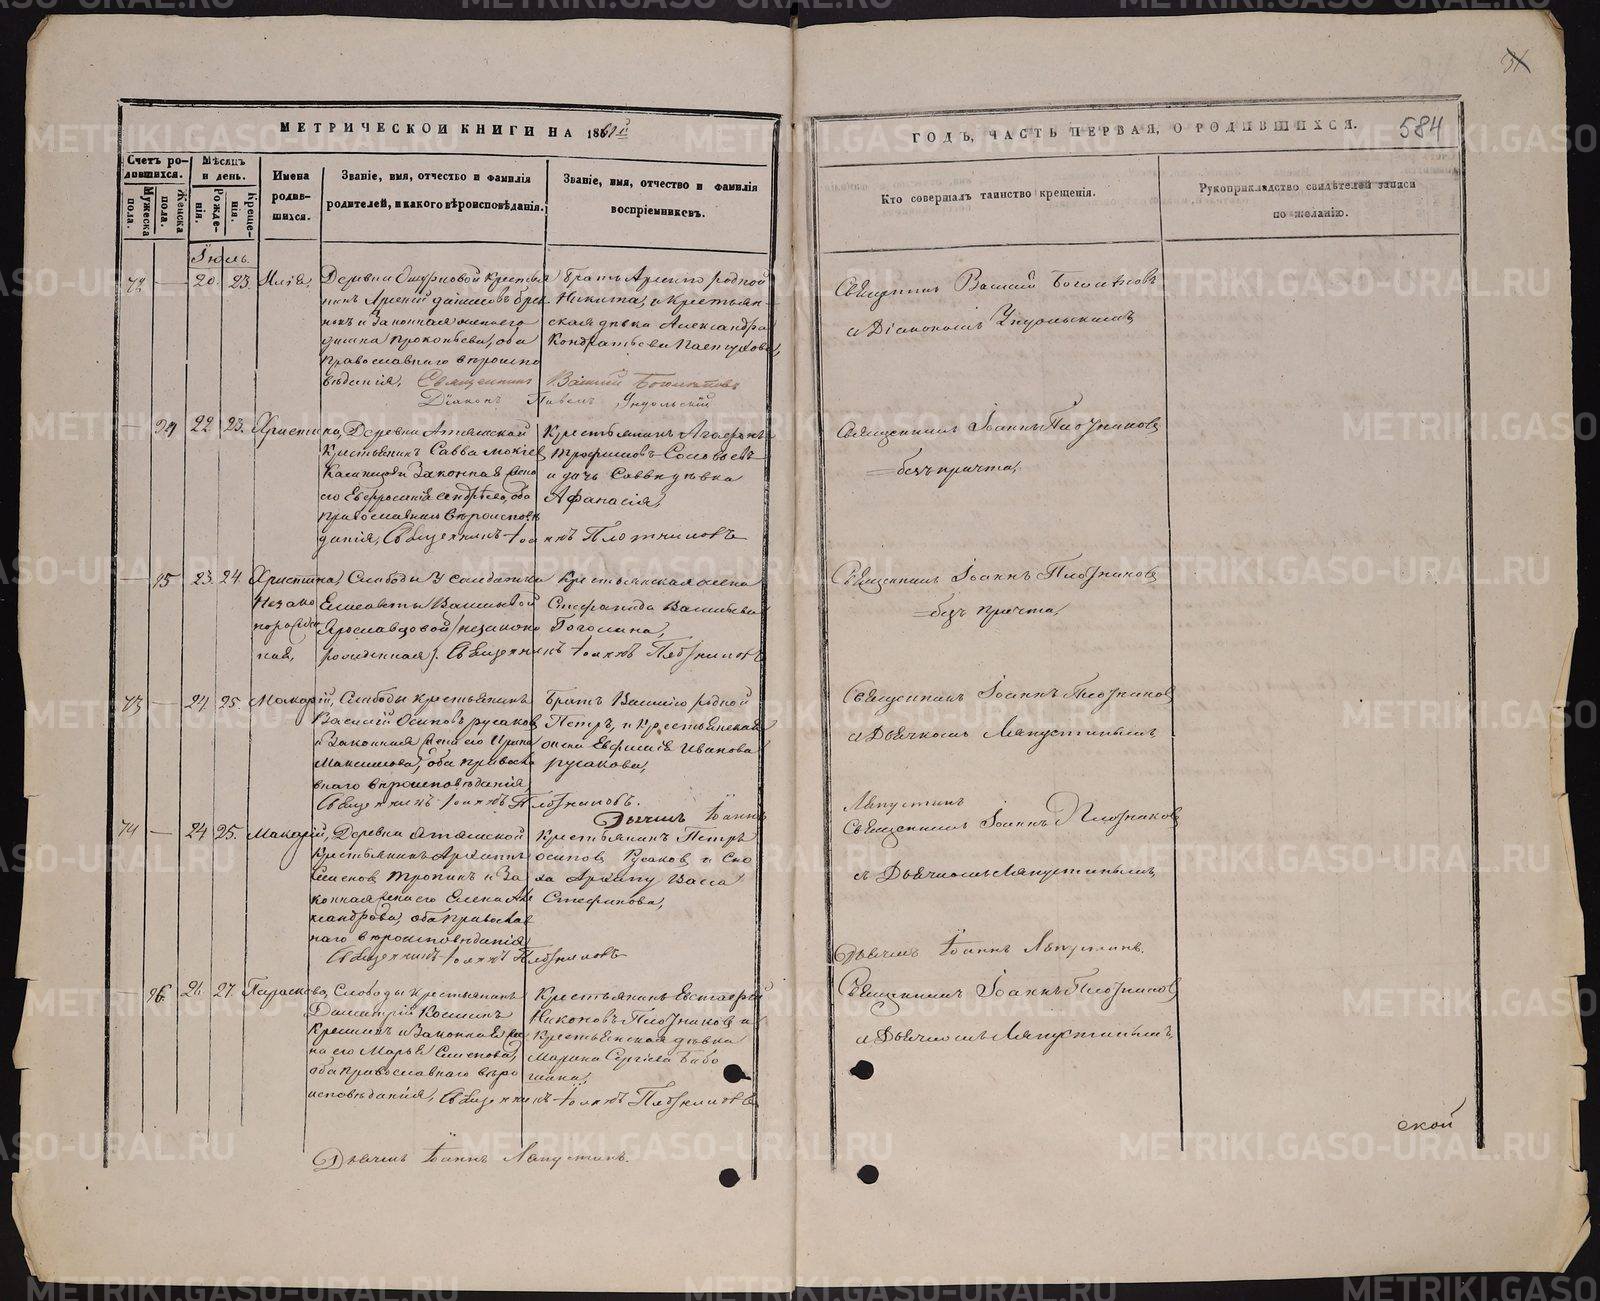 МЕТРИЧЕСКОЙ КНИГИ НА 1861й
ГОДЪ, ЧАСТЬ ПЕРВАЯ, О РОДИВШИХСЯ.
584
Счетъ ро-
дившихся.
Мужеска пола.
Женска пола.
Мѣсяцъ
и день.
Рожде-
нія.
Креще-
нія.
Имена
родив-
шихся.
Званіе, имя, отчество и фамилія
родителей, и какого вѣроисповѣданія.
Званіе, имя, отчество и фамилія
воспріемниковъ.
Кто совершалъ таинство крещенія.
Рукоприкладство свидѣтелей записи
по желанію.
Іюль.
72 — 20. 23. Илія,
Деревни крестья
нинъ Арсеній
и Законная жена его
Прокопьева, оба
православнаго вѣроиспо
вѣданія. Священникъ
Діаконъ Павелъ Ундольскій
Братъ Арсенію родной
Никита, и Крестьян-
ская дѣвка Александра
Кондратьева
Василій
Священникъ Василій
и Діакономъ Ундольскимъ
— 94 22 23. Христина,
Деревни Атямской
Крестьянинъ Савва
и Законная жена
его Евфросинія оба
православнаго вѣроисповѣ
данія, Священникъ Іоаннъ Плотниковъ
Крестьянинъ Агафонъ
Трофимовъ Соловьевъ
и дочь Саввы дѣвка
Афанасія,
Священникъ Іоаннъ Плотниковъ
безъ причта,
— 95 23. 24. Христина,
Незако
норожден
ная,
Слободы У солдатки
Елисаветы Васильевой
Ярославцовой (незаконно
рожденная). Священникъ Іоаннъ Плотниковъ
Крестьянская жена
Стефанида Васильева
Гоголина,
Священникъ Іоаннъ Плотниковъ
безъ причта,
73 — 24 25. Макарій,
Слободы крестьянинъ
Василій Осиповъ Русаковъ
и Законная жена его Ирина
Максимова, оба правосла
внаго вѣроисповѣданія,
Священникъ Іоаннъ Плотниковъ.
Братъ Василію родной
Петръ, и Крестьянская
жена Евфимія Иванова
Русакова,
Дьячекъ Іоаннъ
Священникъ Іоаннъ Плотниковъ
и Дьячкомъ Ляпустинымъ
Ляпустинъ
74 — 24 25. Макарій,
Деревни Атямской
Крестьянинъ Архипъ
Тропинъ и За
конная жена его Елена Але
ксандрова, оба православ
наго вѣроисповѣданія
Священникъ Іоаннъ Плотниковъ
Крестьянинъ Петръ
Осиповъ Русаковъ и Сно
ха Архипу Васса
Стефанова,
Священникъ Іоаннъ Плотниковъ
съ Дьячкомъ Ляпустинымъ,
Дьячекъ Іоаннъ Ляпустинъ.
— 96. 26. 27. Параскева,
Слободы Крестьянинъ
Димитрій Козминъ
и Законная же
на его Марья Семенова,
оба православнаго вѣро
исповѣданія, Священникъ Іоаннъ Плотниковъ
Крестьянинъ Евстафій
Никоновъ Плотниковъ и
Крестьянская дѣвка
Марина Сергіева
Священникъ Іоаннъ Плотниковъ
и Дьячкомъ Ляпустинымъ,
Дьячекъ Іоаннъ Ляпустинъ.
ской
METRIKI.GASO-URAL.RU